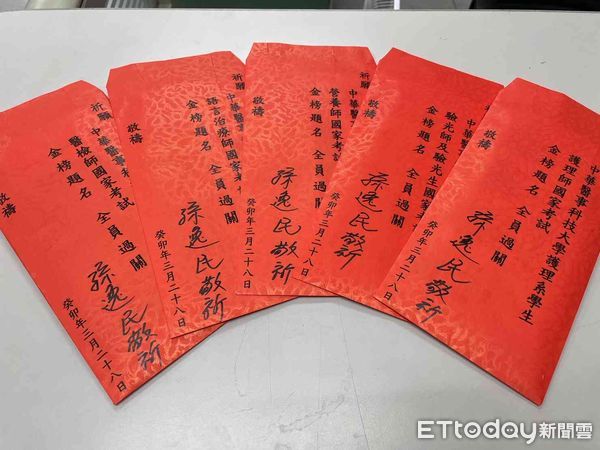 中華醫事科技大學護理系學生
護理師國家考試
金榜題名 全員過關
敬禱
孫逸民敬祈
祈願
中華醫
驗光師及驗光生國家考
金榜題名
敬禱
孫逸民敬祈
癸卯年三月二十八日
祈願
中華醫
營養師國家考試
金榜題名 全員過關
敬禱
孫逸民敬祈
癸卯年三月二十八日
祈願
中華醫事
語言治療師國家考
金榜題名 全員過關
敬禱
孫逸民敬祈
癸卯年三月二十八日
祈願
中華醫事科
醫檢師國家考試
金榜題名 全員過關
敬禱
孫逸民敬祈
癸卯年三月二十八日
ETtoday新聞雲